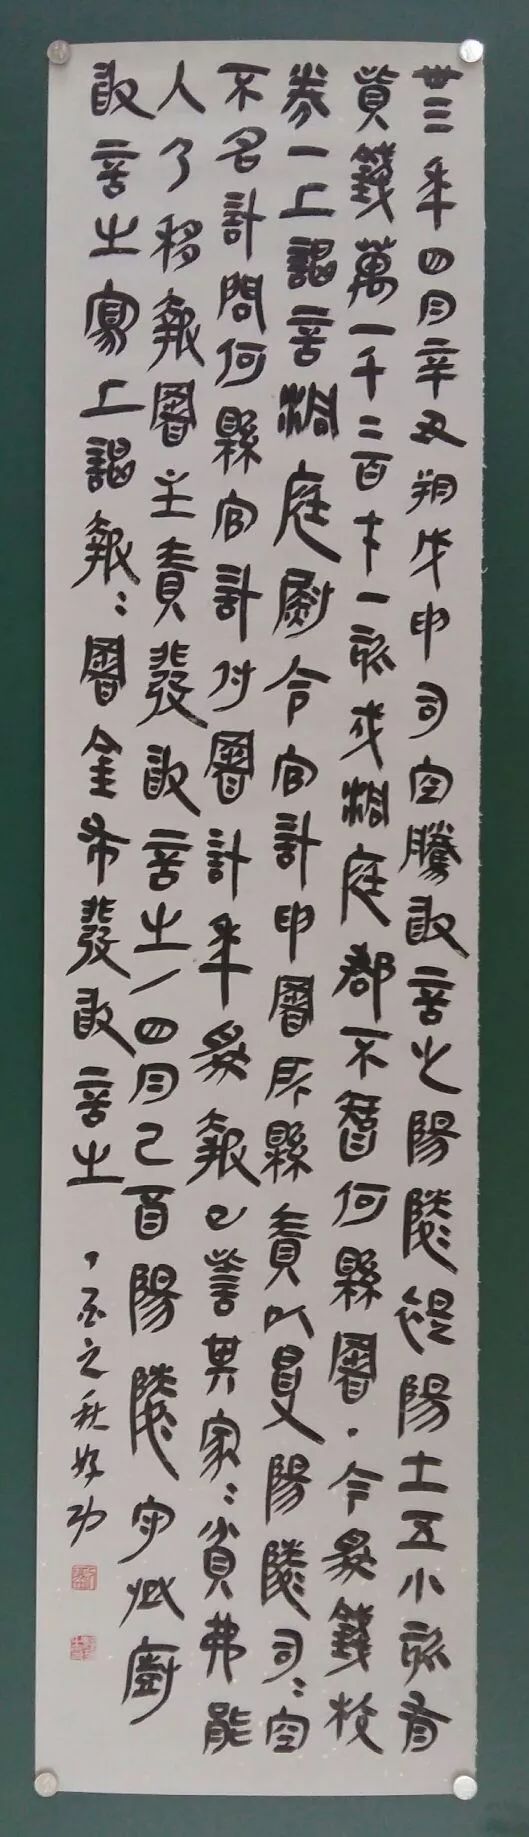 卅三年四月辛丑朔戊申司空騰敢言之陽陵禔陽士五小欬有
貲錢萬一千二百七十一欬戍洞庭郡不智何縣署·今為錢校
券一上謁言洞庭尉令官計申署所縣責以受陽陵司〻空
不名計問何縣官計付署計年為報已訾其家〻貧弗能
入乃移報署主責發敢言之/四月己酉陽陵守丞廚
敢言之寫上謁報〻署金布發敢言之
丁酉之秋好功